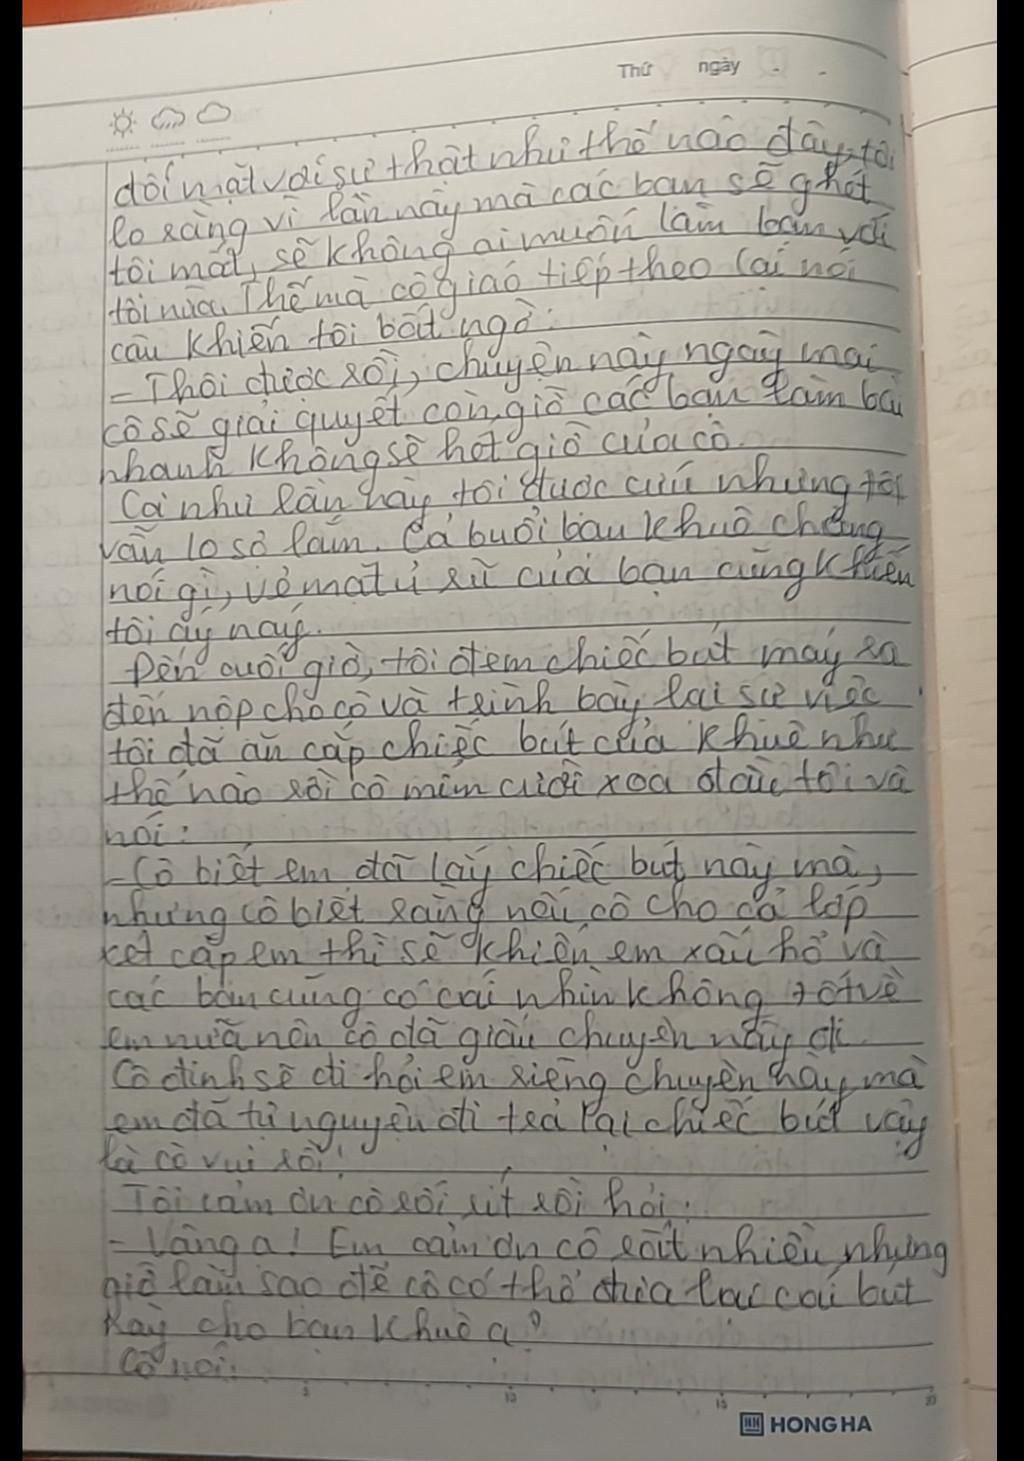 Thứ ngày
đối mặt với sự thật như thế nào đây, tôi
lo rằng vì lần này mà các bạn sẽ ghét
tôi mất, sẽ không ai muốn làm bạn với
tôi nữa. Thế mà cô giáo tiếp theo lại nói
câu khiến tôi bất ngờ:
- Thôi được rồi, chuyện này ngày mai
cô sẽ giải quyết còn giờ các bạn làm bài
nhanh không sẽ hết giờ của cô.
Coi như lần này tôi được cứu nhưng tôi
vẫn lo sợ lắm. Cả buổi bạn Khuê chẳng
nói gì, vẻ mặt ủ rũ của bạn cũng khiến
tôi áy náy.
Đến cuối giờ, tôi đem chiếc bút máy ra
đến nộp cho cô và trình bày lại sự việc
tôi đã ăn cắp chiếc bút của Khuê như
thế nào rồi cô mỉm cười xoa đầu tôi và
nói:
- Cô biết em đã lấy chiếc bút này mà,
nhưng cô biết rằng nếu cô cho cả lớp
xét cặp em thì sẽ khiến em xấu hổ và
các bạn cũng có cái nhìn không tốt về
em nữa nên cô đã giấu chuyện này đi.
Cô định sẽ đi hỏi em riêng chuyện này mà
em đã tự nguyện đi trả lại chiếc bút vậy
là cô vui rồi!
Tôi cảm ơn cô rối rít rồi hỏi:
- Vâng ạ! Em cảm ơn cô rất nhiều, nhưng
giờ làm sao để cô có thể đưa lại cái bút
này cho bạn Khuê ạ?
Cô nói:
5 10 15 20
HONG HA